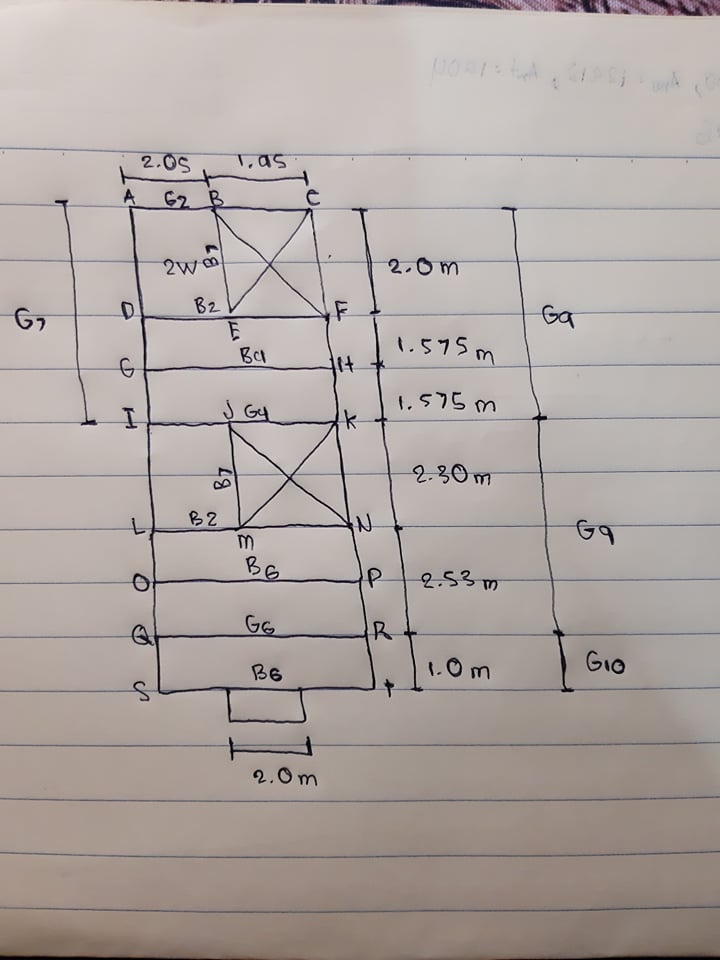 2.05 1.95
A G2 B C
2W B7 2.0m
D B2 E F
G7 G9
1.575 m
G B9 H
1.575 m
I J G4 K
B7 2.30m
L B2 M N
G9
O B6 P 2.53m
Q G6 R
1.0m G10
S B6 T
2.0m